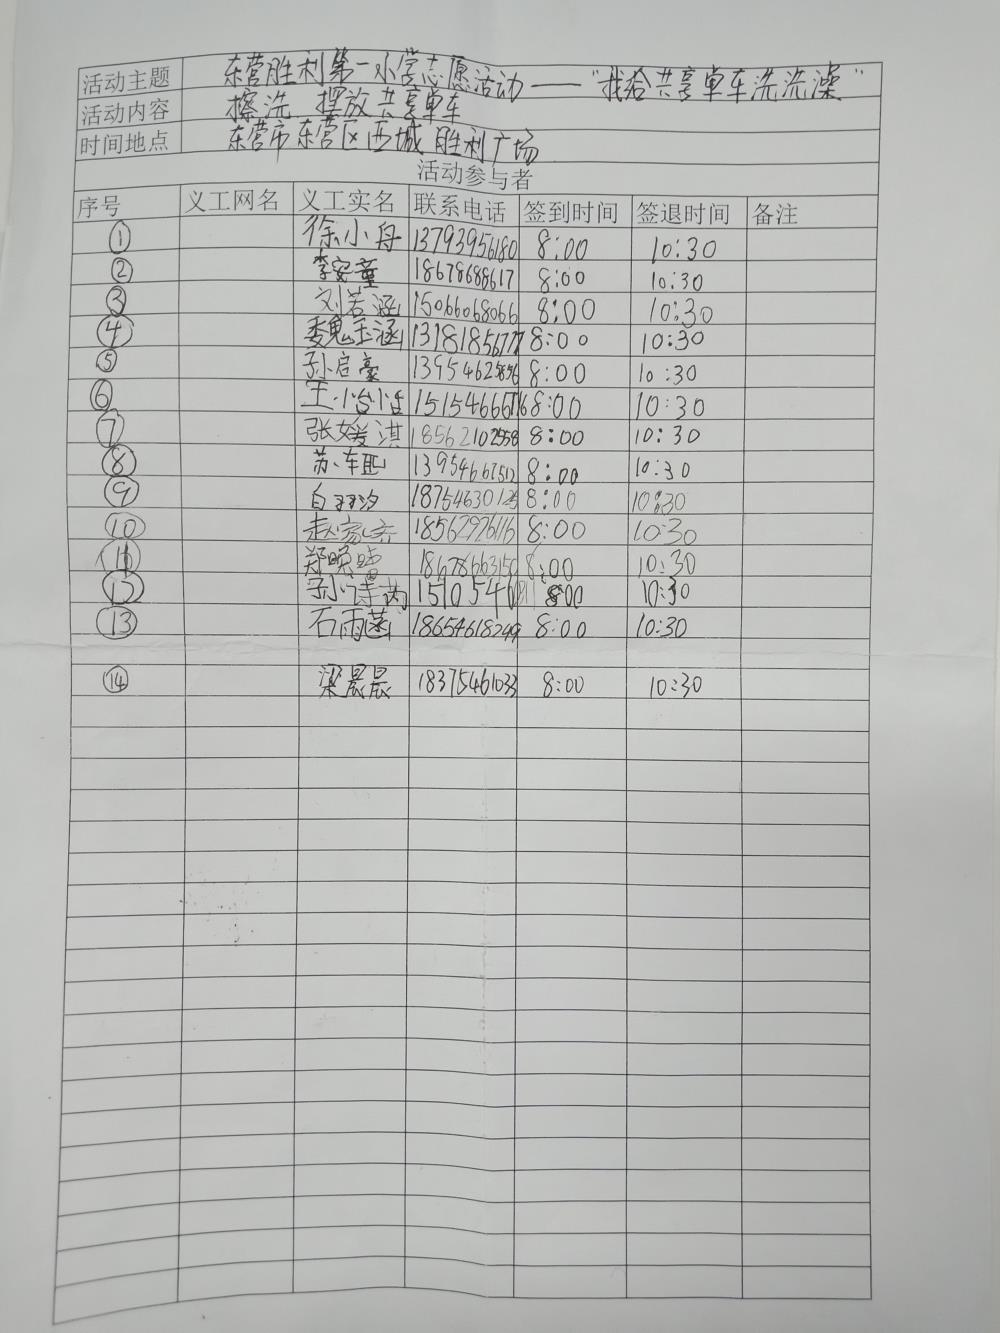 活动主题 东营胜利第一小学志愿活动——“我给共享单车洗洗澡”
活动内容 擦洗、摆放共享单车
时间地点 东营市东营区西城胜利广场
活动参与者
序号 义工网名 义工实名 联系电话 签到时间 签退时间 备注
① 徐小舟 13793956180 8:00 10:30
② 李安童 18678688617 8:00 10:30
③ 刘若涵 15066068066 8:00 10:30
④ 魏玉涵 13181856777 8:00 10:30
⑤ 孙启豪 8:00 10:30
⑥ 王 8:00 10:30
⑦ 张媛淇 18562102558 8:00 10:30
⑧ 苏 13954667512 8:00 10:30
⑨ 白羽汐 8:00 10:30
⑩ 赵家 18562976116 8:00 10:30
⑪ 郑晓 18678663150 8:00 10:30
⑫ 孙 8:00 10:30
⑬ 石雨菡 18654618249 8:00 10:30
⑭ 梁晨晨 18375461033 8:00 10:30